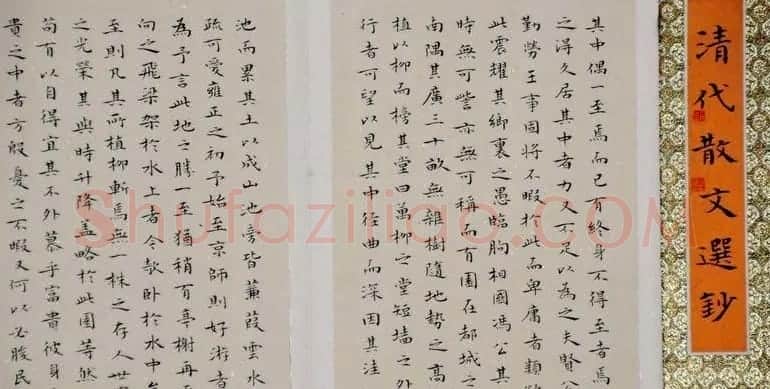 清代散文選鈔
其中偶一至焉而已有終身不得至者焉
之得久居其中者力又不足以為之夫賢公
勤勞王事固將不暇於此而卑庸者類
此震耀其鄉裏之愚臨朐相國馮公其
時無可訾亦無可稱而有園在都城之
南隅其廣三十畝無雜樹隨地勢之高
植以柳而榜其堂曰萬柳之堂短墻之外
行者可望以見其中徑曲而深因其洼
池而累其土以成山池旁皆蒹葭雲水
疏可愛雍正之初予始至京師則好游者
為予言此地之勝一至猶稍有亭榭再
向之飛梁架於水上者今欹卧於水中
至則凡其所植柳斬焉無一株之存人世
之光榮其與時升降蓋略於此園等然
苟有以自得宜其不外慕乎富貴彼身
貴之中者方殷憂之不暇又何以必朘民
Shufaziliao.COM